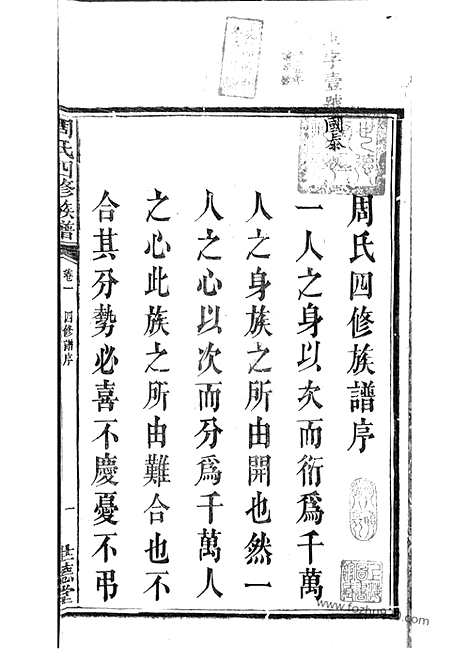 字壹號國泰
周氏四修族譜序
一人之身以次而衍爲千萬
人之身族之所由開也然一
人之心以次而分爲千萬人
之心此族之所由難合也不
合其分勢必喜不慶憂不弔
周氏四修族譜
卷一
四修譜序
一
世德堂
www.fozhu920.com